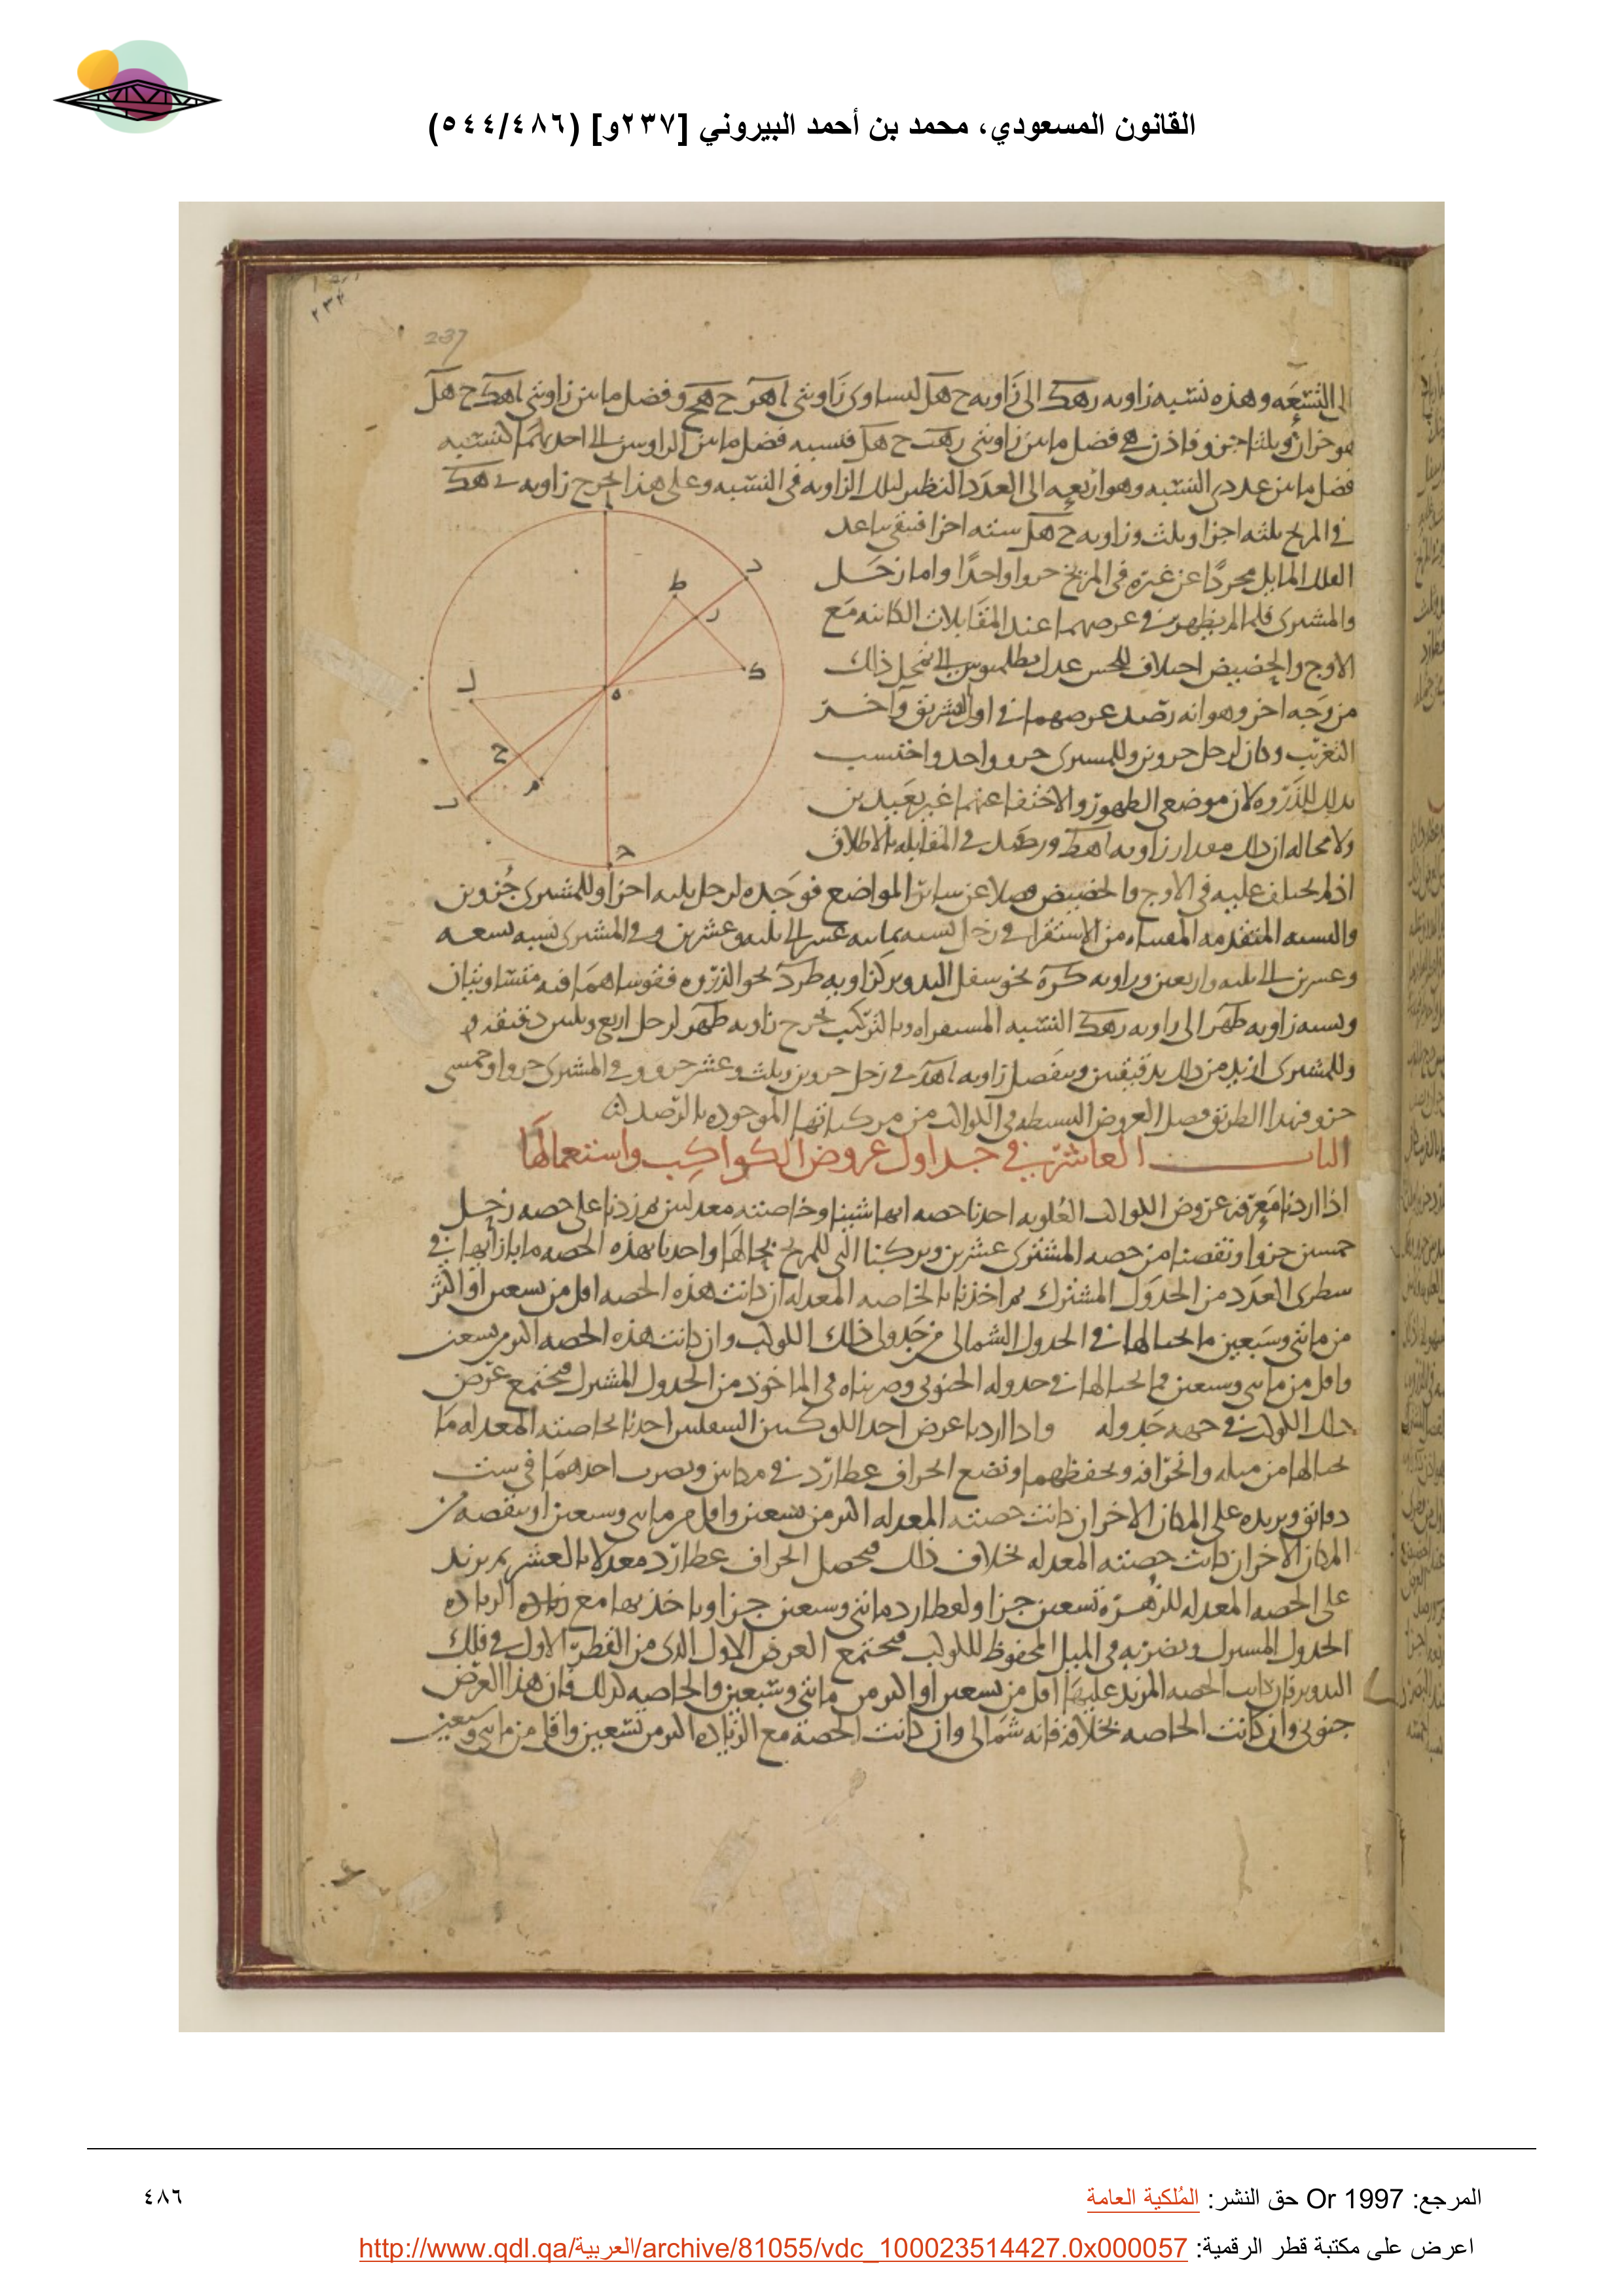 القانون المسعودي، محمد بن أحمد البيروني [٢٣٧و] (٥٤٤/٤٨٦)
237
إلى التسعة وهذه نسبة زاويه رهك الى زاويه ح هل لتساوى زاويتى اهر ح هج وفضل ما بين زاويتى اهك ح هل
هو جزآن وثلثا جزو فاذن هى فضل ما بين زاويتى رهك ح هل فنسبه فضل ما بين الزاويتين الى احديهما كنسبه
فضل ما بين عددى النسبه وهو اربعه الى العدد النظير لتلك الزاويه فى النسبه وعلى هذا يخرج زاويه رهك
فى المريخ ثلثه اجزا وثلث وزاويه ح هل سته اجزا فيبقى تباعد
الفلك المايل مجردًا عن غيره فى المريخ جزوا واحدًا واما زحل
والمشترى فلما لم يظهر فى عرضهما عند المقابلات الكاينه مع
الاوج والحضيض اختلاف للحس عدل بطلميوس الى تمحل ذلك
من وجه اخر وهو انه رصد عرضهما فى اول التشريق وآخر
التغريب وكان لزحل جزوين وللمشترى جزو واحد واحتسب
بذلك للذروه لان موضعى الظهور والاختفا عنها غير بعيدين
ولا محاله ان ذلك مقدار زاويه اهط ورصد فى المقابله بالاطلاق
اذ لم يختلف عليه فى الاوج والحضيض فضلا عن ساير المواضع فوجده لزحل ثلثه اجزا وللمشترى جزوين
والنسبه المتقدمه المقتناه من الاستقرا فى زحل نسبه ثمانيه عشر الى ثلثه وعشرين وفى المشترى نسبه تسعه
وعشرين الى ثلثه واربعين وزاويه كره نحو سفل التدوير كزاويه طرد نحو الذروه فقوساهما فيه متساويتان
ونسبه زاويه طهر الى زاويه رهك النسبه المستقراه وبالتركيب يخرج زاويه طهر لزحل اربع وثلثين دقيقه
وللمشترى ازيد من ذلك بدقيقتين وينفصل زاويه اهر فى زحل جزوين وثلث وعشر جزو وفى المشترى جزوا وخمسى
جزو فبهذا الطريق فصل العروض البسيطه فى الكواكب من مركباتها الموجوده بالرصد
الباب العاشر فى جداول عروض الكواكب واستعمالها
اذا اردنا معرفه عروض الكواكب العلويه اخذنا حصه ايها شينا وخاصته معدلتين ثم زدنا على حصه زحل
خمسين جزوا ونقصنا من حصه المشترى عشرين وتركنا التى للمريخ بحالها واخذنا بهذه الحصه ما بازآيها فى
سطرى العدد من الجدول المشترك ثم اخذنا بالخاصه المعدله ان كانت هذه الحصه اقل من تسعين او اكثر
من مائتى وسبعين ما بحيالها فى الجدول الشمالى من جدولى ذلك الكوكب وان كانت هذه الحصه اكثر من تسعين
واقل من مائتى وسبعين فما بحيالها فى جدوله الجنوبى وضربناه فى الماخوذ من الجدول المشترك فيجتمع عرض
ذلك الكوكب فى جهه جدوله واذا اردنا عرض احد الكوكبين السفليين اخذنا بخاصته المعدله ما
بحيالها من ميله وانحرافه ونحفظهما ونضع انحراف عطارد فى مكانين ونضرب احدهما فى ست
دقائق ونزيده على المكان الاخر ان كانت حصته المعدله اكثر من تسعين واقل من مائتى وسبعين او ننقصه من
المكان الاخر ان كانت حصته المعدله بخلاف ذلك فيحصل انحراف عطارد معدلا بالعشر ثم نزيد
على الحصه المعدله للزهره تسعين جزا ولعطارد مائتى وسبعين جزا وناخذ بها مع الزياده
الجدول المشترك ونضربه فى الميل المحفوظ للكوكب فيجتمع العرض الاول الذى من القطر الاول فى فلك
التدوير فان كانت الحصه المزيد عليها اقل من تسعين او اكثر من مائتى وسبعين والخاصه كذلك فان هذا العرض
جنوبى وان كانت الخاصه بخلافه فانه شمالى وان كانت الحصه مع الزياده اكثر من تسعين واقل من مائتى وسبعين
المرجع: Or 1997 حق النشر: المُلكية العامة
٤٨٦
اعرض على مكتبة قطر الرقمية: http://www.qdl.qa/العربية/archive/81055/vdc_100023514427.0x000057